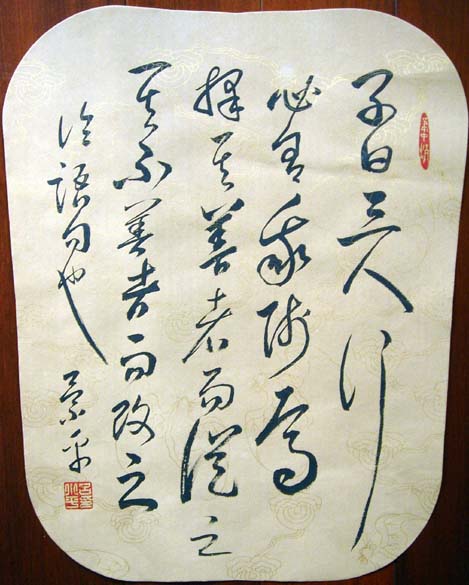 子曰三人行
必有我師焉
擇其善者而從之
其不善者而改之
論語句也